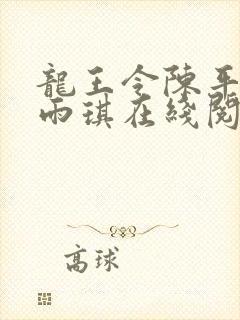 龍王令陳平
雨琪在綫閱
高球